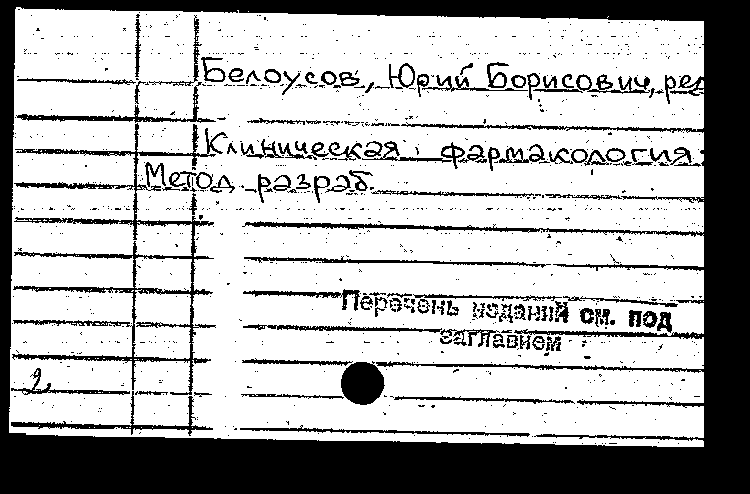 Белоусов, Юрий Борисович, ред
Клиническая фармакология:
Метод. разраб.
Перечень изданий см. под
заглавием
2